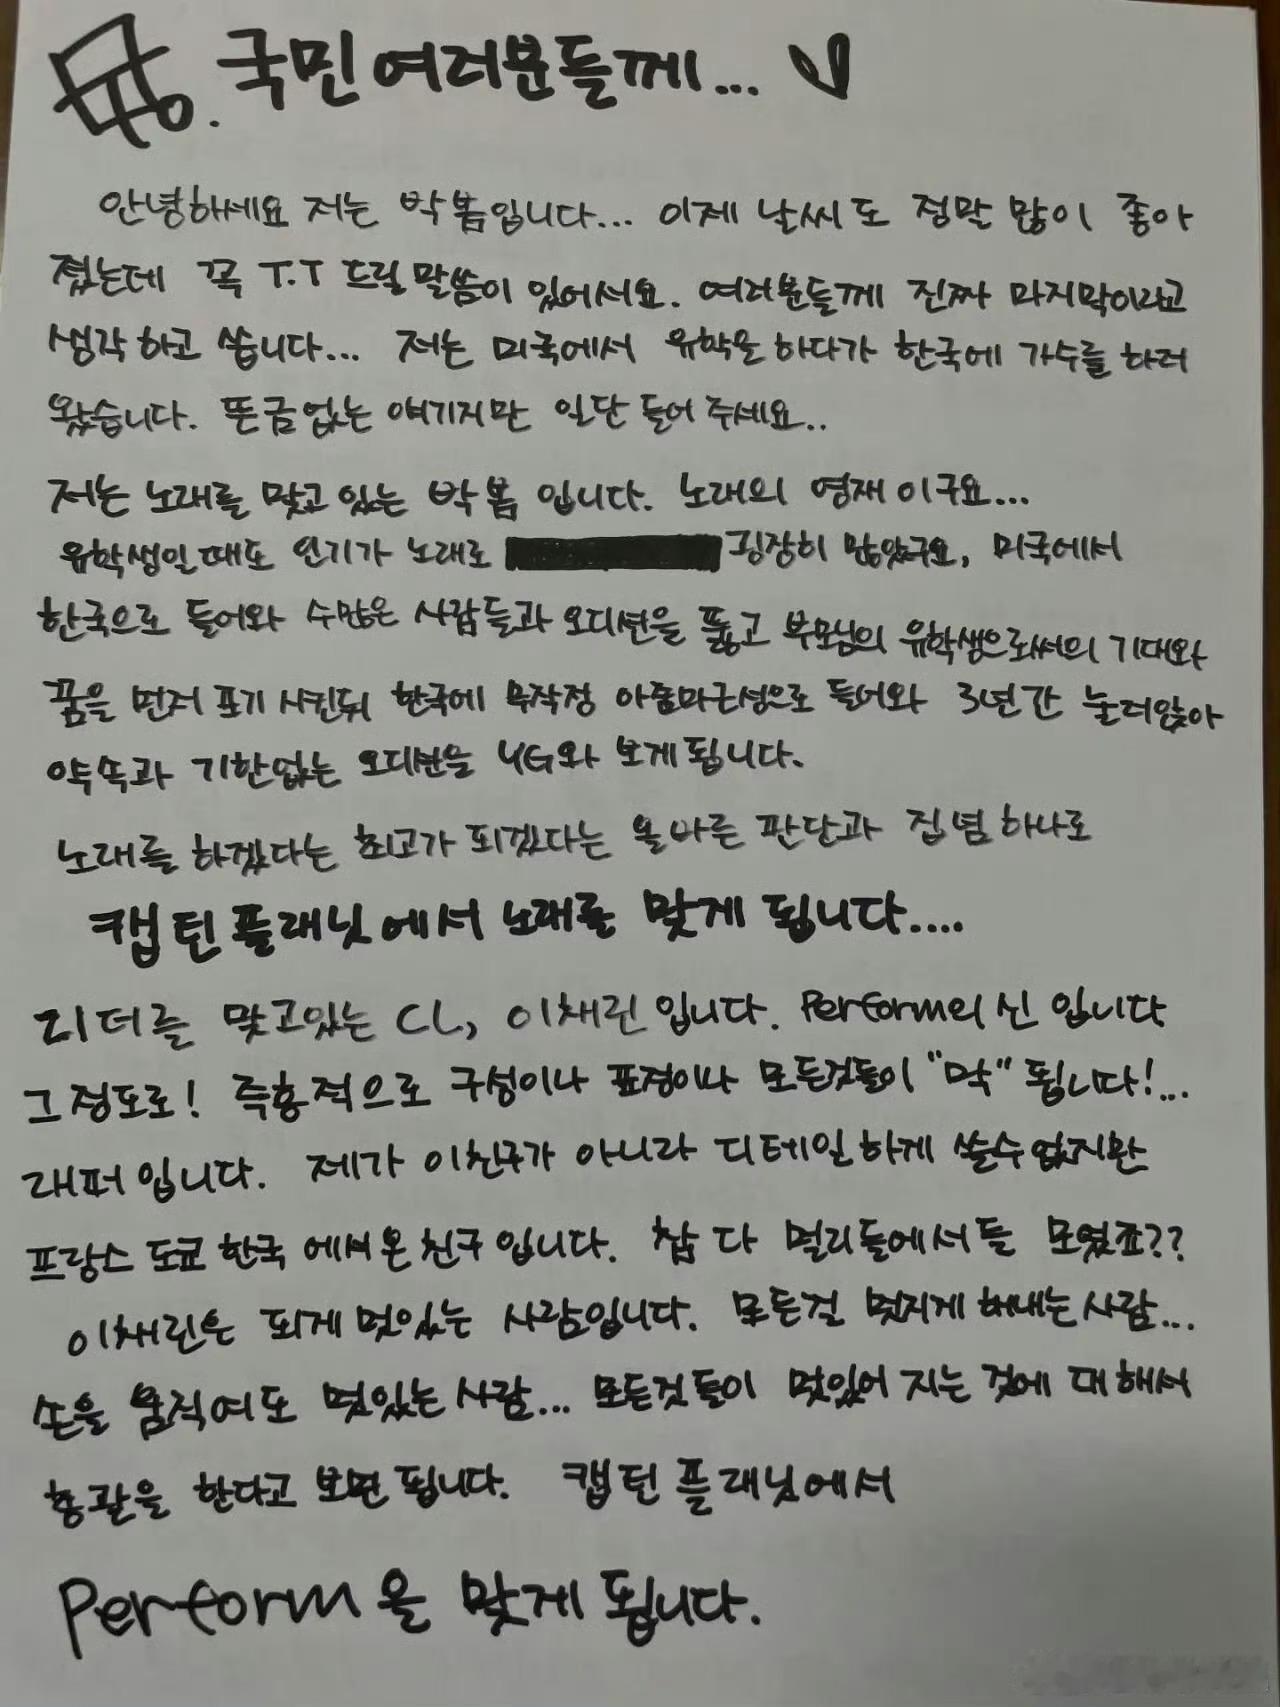 국민여러분들께...
안녕하세요 저는 박봄입니다... 이제 날씨도 정말 많이 좋아
졌는데 꼭 T.T 드릴말씀이 있어서요. 여러분들께 진짜 마지막이라고
생각하고 씁니다... 저는 미국에서 유학을 하다가 한국에 가수를 하러
왔습니다. 뜬금없는 얘기지만 일단 들어주세요..
저는 노래를 맞고있는 박봄 입니다. 노래의 영재이구요...
유학생일때도 인기가 노래로 굉장히 많았구요, 미국에서
한국으로 들어와 수많은 사람들과 오디션을 뚫고 부모님의 유학생으로써의 기대와
꿈을 먼저 포기 시킨뒤 한국에 무작정 아줌마근성으로 들어와 3년간 눌러앉아
약속과 기한없는 오디션을 YG와 보게됩니다.
노래를 하겠다는 최고가 되겠다는 올바른 판단과 집념 하나로
캡틴플래닛에서 노래를 맞게 됩니다....
리더를 맞고있는 CL, 이채린입니다. Perform의 신 입니다
그정도로! 즉흥적으로 구성이나 표정이나 모든것들이 "막" 됩니다!...
래퍼입니다. 제가 이친구가 아니라 디테일하게 쓸수없지만
프랑스 도쿄 한국 에서온친구입니다. 참 다 멀리들에서들 모였죠??
이채린은 되게멋있는 사람입니다. 모든걸 멋지게 해내는사람...
손을 움직여도 멋있는사람... 모든것들이 멋있어 지는 것에 대해서
총괄을 한다고 보면 됩니다. 캡틴플래닛에서
Perform을 맞게됩니다.